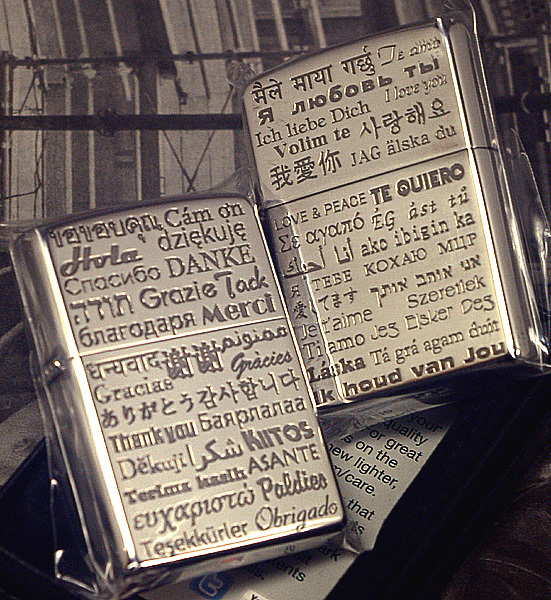 ขอบคุณ Cám ơn
Hola dziękuję
Спасибо DANKE
תודה Grazie Tack
благодаря Merci
धन्यवाद 謝謝 ممنونم
Gracias Gràcies
ありがとう 감사합니다
Thank you Баярлалаа
Děkuji شكرا KIITOS
Terima kasih ASANTE
ευχαριστώ Paldies
Teşekkürler Obrigado
मैले माया गर्छु Te amo
Я любовь ты
Ich liebe Dich I love you
Volim te 사랑해요
我愛你 JAG älska du
LOVE & PEACE TE QUIERO
Σε αγαπό Ég ást tú
أنا أحبك ako ibigin ka
ТЕБЕ КОХАЮ МИР
てます אני אוהב אותך
Je t'aime Szeretlek
Ti amo Jeg Elsker Deg
Láska Tá grá agam duit
Ik houd van Jou
your
quality
or great
is on the
new lighter,
m/care.
that